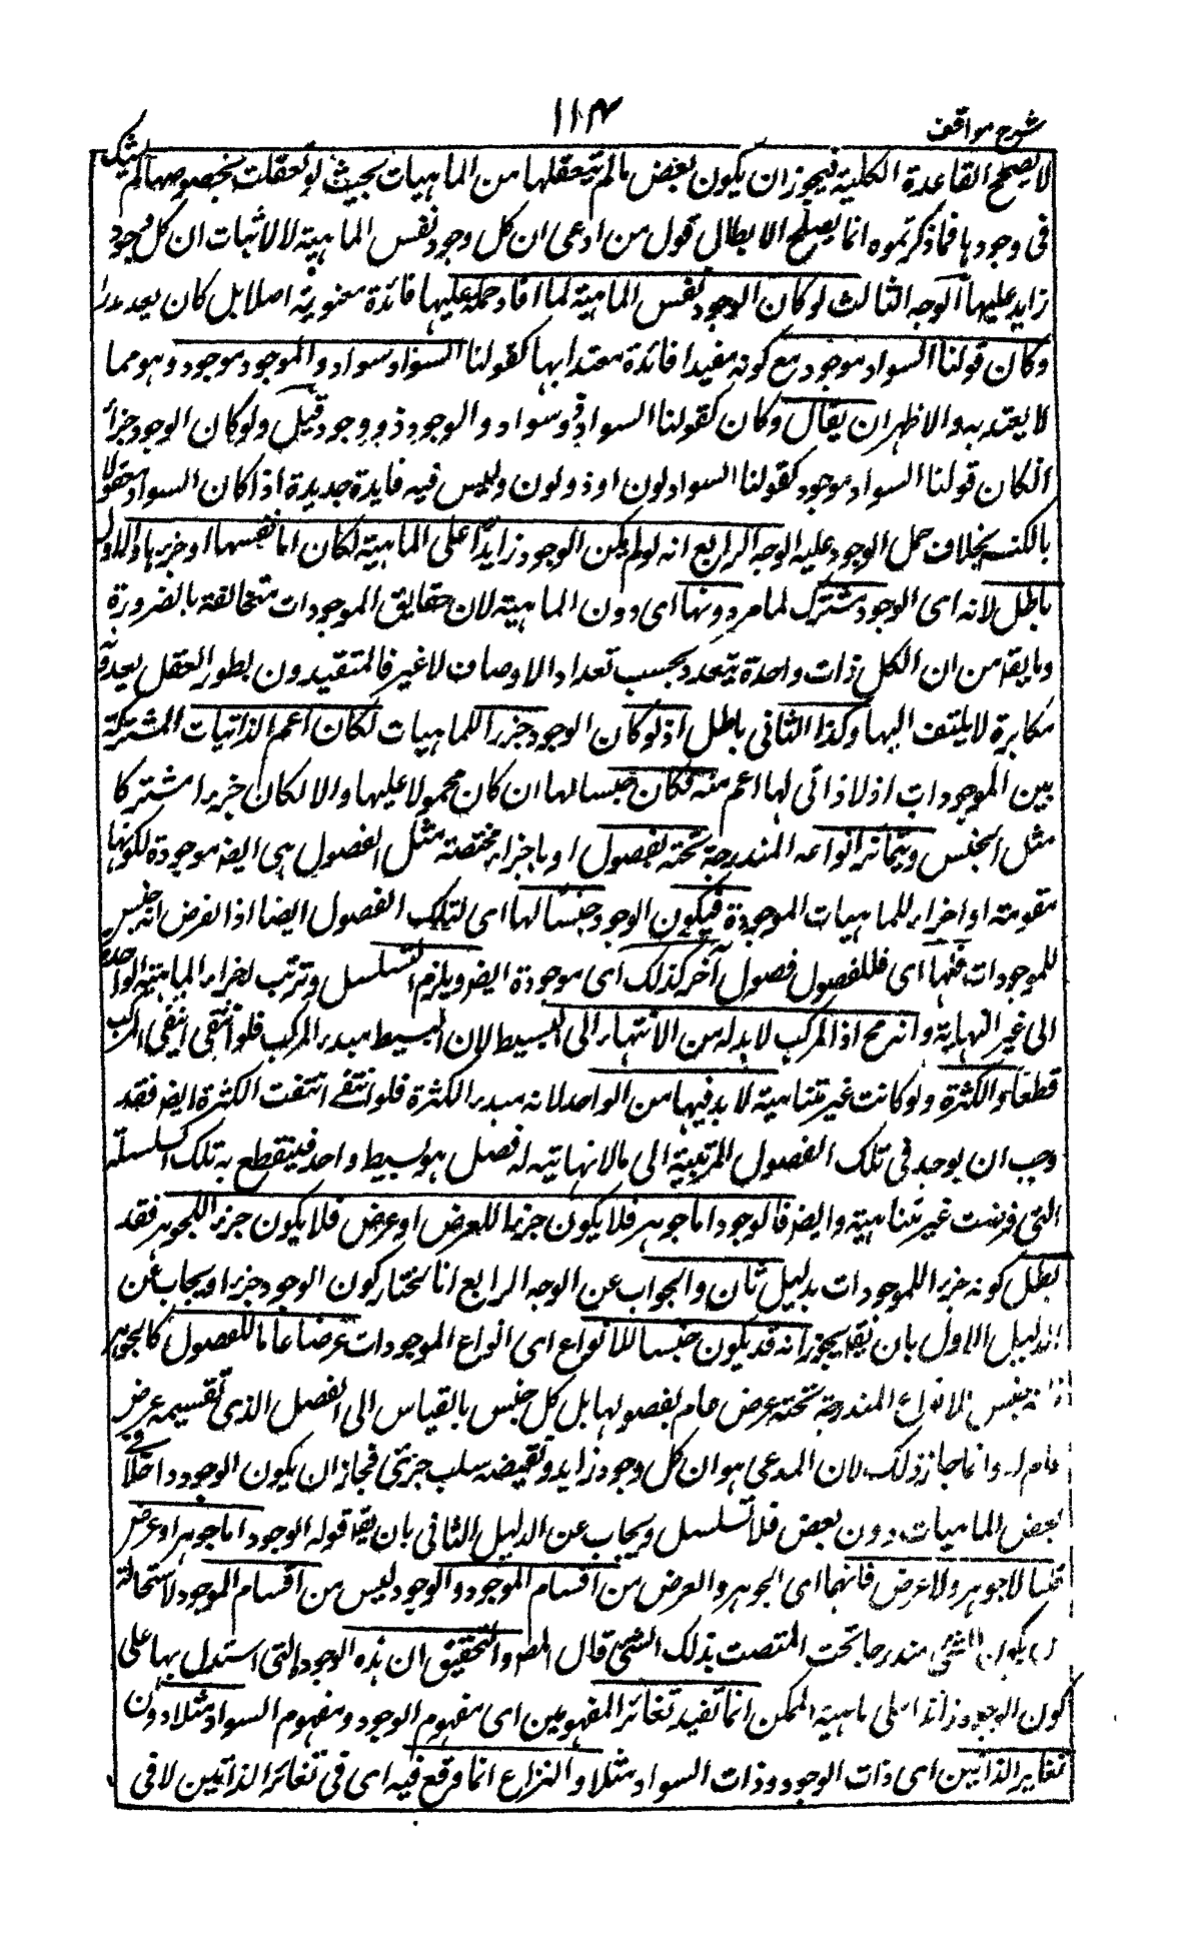 ١١٤
شرح مواقف
لا يصحح القاعدة الكلية فيجوز ان يكون بعض مالم نتعقلها من الماهيات بحيث لو تعقلت بخصوصها لم يشك
فى وجودها فما ذكرتموه انما يصلح الابطال قول من ادعى ان كل وجود نفس الماهية لا لاثبات ان كل وجود
زايد عليها الوجه الثالث لو كان الوجود نفس الماهية لما افاد حمله عليها فائدة معنوية اصلا بل كان يعد هدرا
وكان قولنا السواد موجود مع كونه مفيدا فائدة معتدا بها كقولنا السواد سواد والموجود موجود وهو مما
لا يعتد به والاظهر ان يقال وكان كقولنا السواد ذو سواد والوجود ذو وجود قيل ولو كان الوجود جزأ
لكان قولنا السواد موجود كقولنا السواد لون او ذو لون وليس فيه فايدة جديدة اذا كان السواد معقولا
بالكنه بخلاف حمل الوجود عليه الوجه الرابع انه لو لم يكن الوجود زايدا على الماهية لكان اما نفسها او جزءها والاول
باطل لانه اى الوجود مشترك لما مر دونها اى دون الماهية لان حقايق الموجودات متخالفة بالضرورة
وما يقه من ان الكل ذات واحدة تتعدد بحسب تعداد الاوصاف لا غير فالمتقيدون بطور العقل يعدونه
مكابرة لا يلتفت اليها وكذا الثانى باطل اذ لو كان الوجود جزءا للماهيات لكان اعم الذاتيات المشتركة
بين الموجودات اذ لا ذاتى لها اعم منه فكان جنسا لها ان كان محمولا عليها والا لكان جزءا مشتركا
مثل الجنس ويتمايز انواعه المندرجة تحته بفصول او باجزاء مختصة مثل الفصول هى ايضه موجودة لكونها
مقومة او اجزاء للماهيات الموجودة فيكون الوجود جنسا لها اى لتلك الفصول ايضا اذ الفرض انه جنس
للموجودات فلها اى فللفصول فصول آخر كذلك اى موجودة ايضه ويلزم التسلسل وترتب اجزاء الماهية الواحدة
الى غير النهاية وانه مح اذ المركب لا بد له من الانتهاء الى البسيط لان البسيط مبدء المركب فلو انتفى انتفى المركب
قطعا والكثرة ولو كانت غير متناهية لا بد فيها من الواحد لانه مبدء الكثرة فلو انتفى انتفت الكثرة ايضه فقد
وجب ان يوجد فى تلك الفصول المترتبة الى مالا نهاية له فصل هو بسيط واحد فينقطع به تلك السلسلة
التى فرضت غير متناهية وايضه فالوجود اما جوهر فلا يكون جزءا للعرض او عرض فلا يكون جزءا للجوهر فقد
بطل كونه جزءا للموجودات بدليل ثان والجواب عن الوجه الرابع انا نختار كون الوجود جزءا ويجاب عن
الدليل الاول بان يقه يجوز انه قد يكون جنسا للانواع اى انواع الموجودات عرضا عاما للفصول كالجوهر
فانه جنس للانواع المندرجة تحته عرض عام لفصولها بل كل جنس بالقياس الى الفصل الذى تقسيمه عرض
عام له وانما جاز ذلك لان المدعى هو ان كل وجود زايد ونقيضه سلب جزئى فجاز ان يكون الوجود داخلا فى
بعض الماهيات دون بعض فلا تسلسل ويجاب عن الدليل الثانى بان يقه قوله الوجود اما جوهر او عرض
قلنا لا جوهر ولا عرض فانهما اى الجوهر والعرض من اقسام الموجود والوجود ليس من اقسام الموجود لاستحالة
ان يكون الشئ مندرجا تحت المتصف بذلك الشئ قال المصه والتحقيق ان هذه الوجوه التى استدل بها على
كون الوجود زائدا على ماهية الممكن انما تفيد تغائر المفهومين اى مفهوم الوجود ومفهوم السواد مثلا دون
تغاير الذاتين اى ذات الوجود وذات السواد مثلا والنزاع انما وقع فيه اى فى تغائر الذاتين لا فى